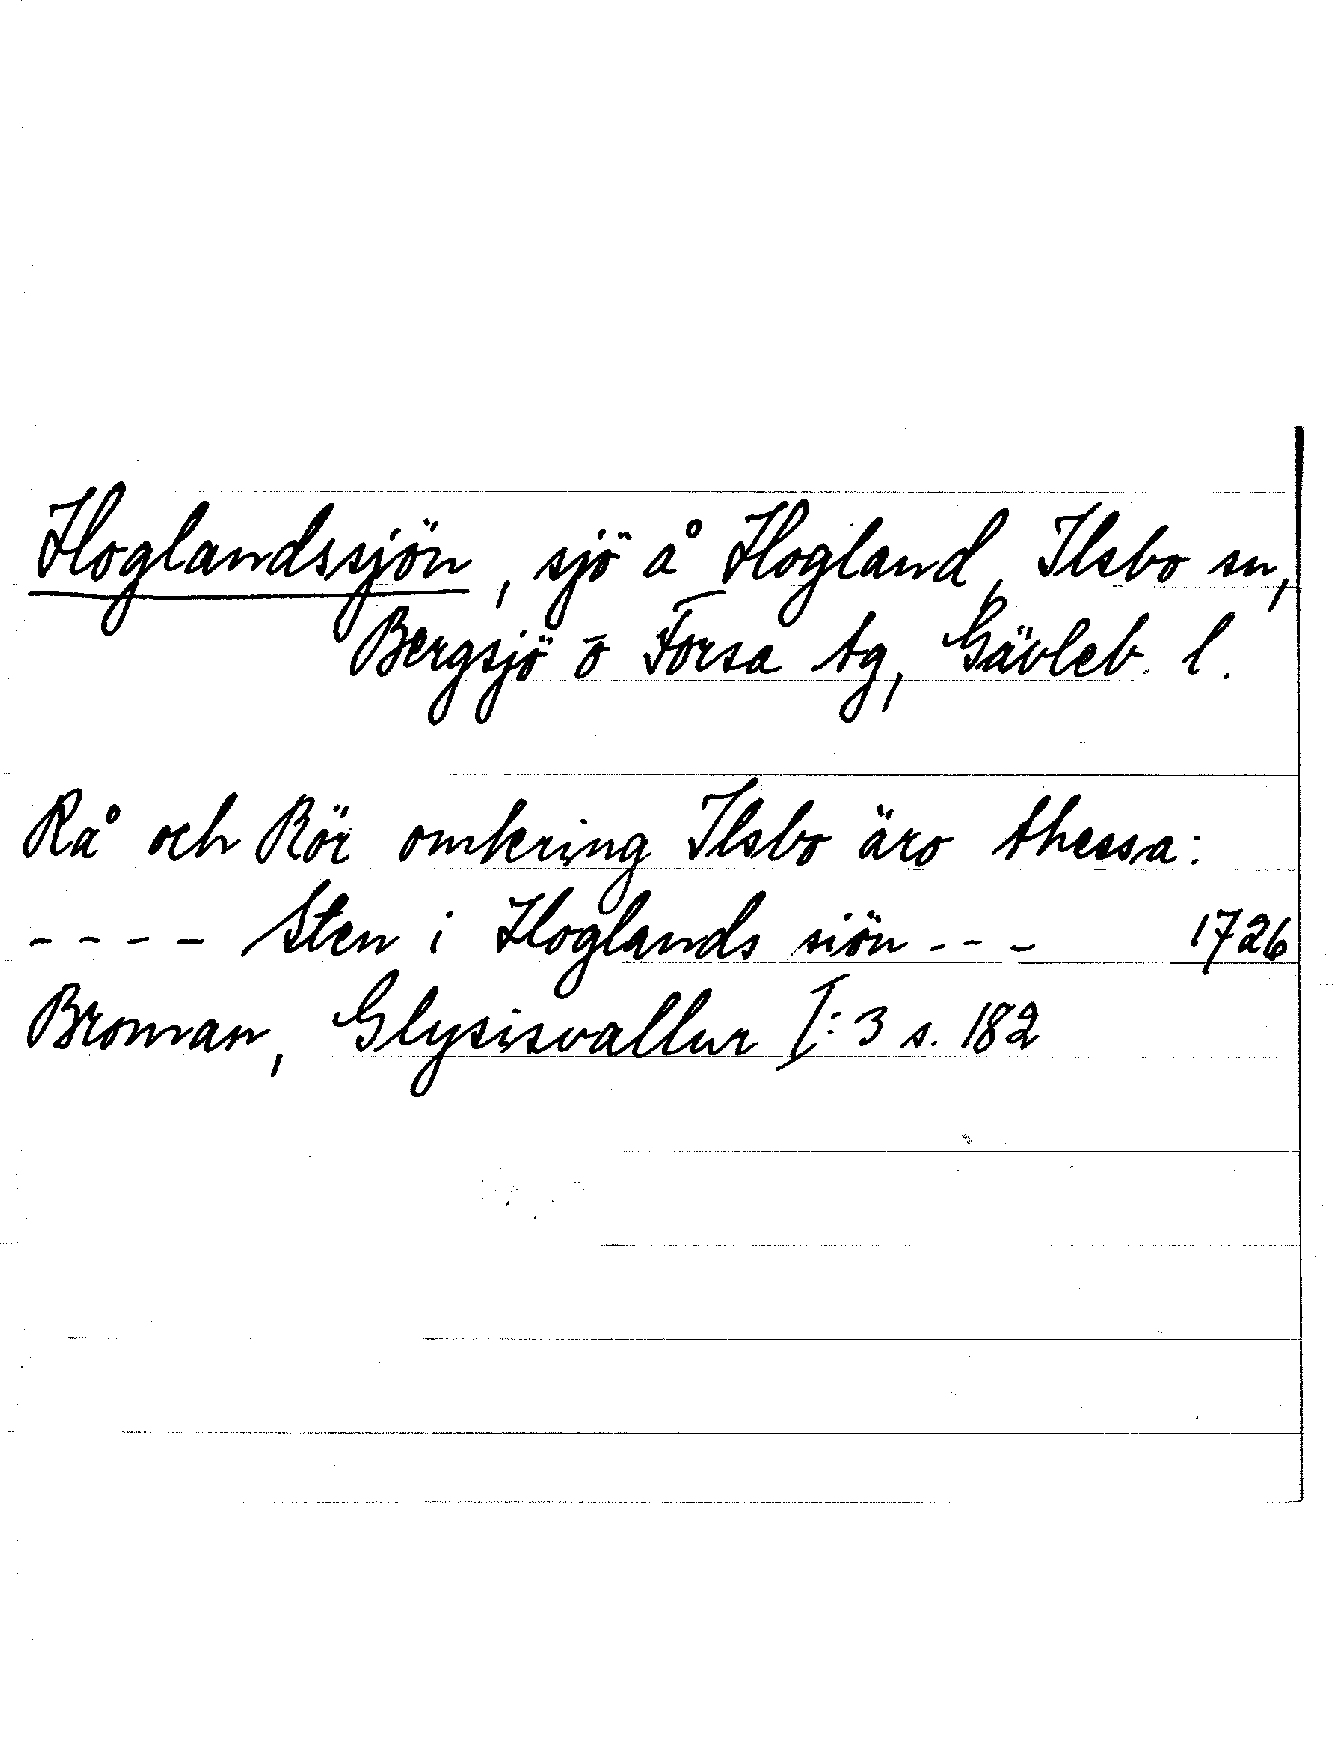 Hoglandssjön, sjö å Hogland, Ilsbo sn,
Bergsjö o Forsa tg, Gävleb. l.
Rå och Rör omkring Ilsbo äro thessa:
---- Sten i Hoglands siön --- 1726
Broman, Glysisvallur I:3 s. 182